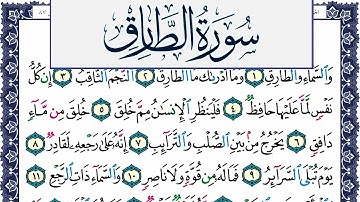 سُورَةُ الطَّارِقِ
وَالسَّمَآءِ وَالطَّارِقِ ١ وَمَآ أَدْرَىٰكَ مَا الطَّارِقُ ٢ النَّجْمُ الثَّاقِبُ ٣ إِن كُلُّ
نَفْسٍ لَّمَّا عَلَيْهَا حَافِظٌ ٤ فَلْيَنظُرِ الْإِنسَٰنُ مِمَّ خُلِقَ ٥ خُلِقَ مِن مَّآءٍ
دَافِقٍ ٦ يَخْرُجُ مِنۢ بَيْنِ الصُّلْبِ وَالتَّرَآئِبِ ٧ إِنَّهُۥ عَلَىٰ رَجْعِهِۦ لَقَادِرٌ ٨
يَوْمَ تُبْلَى السَّرَآئِرُ ٩ فَمَا لَهُۥ مِن قُوَّةٍ وَلَا نَاصِرٍ ١٠ وَالسَّمَآءِ ذَاتِ الرَّجْعِ ١١